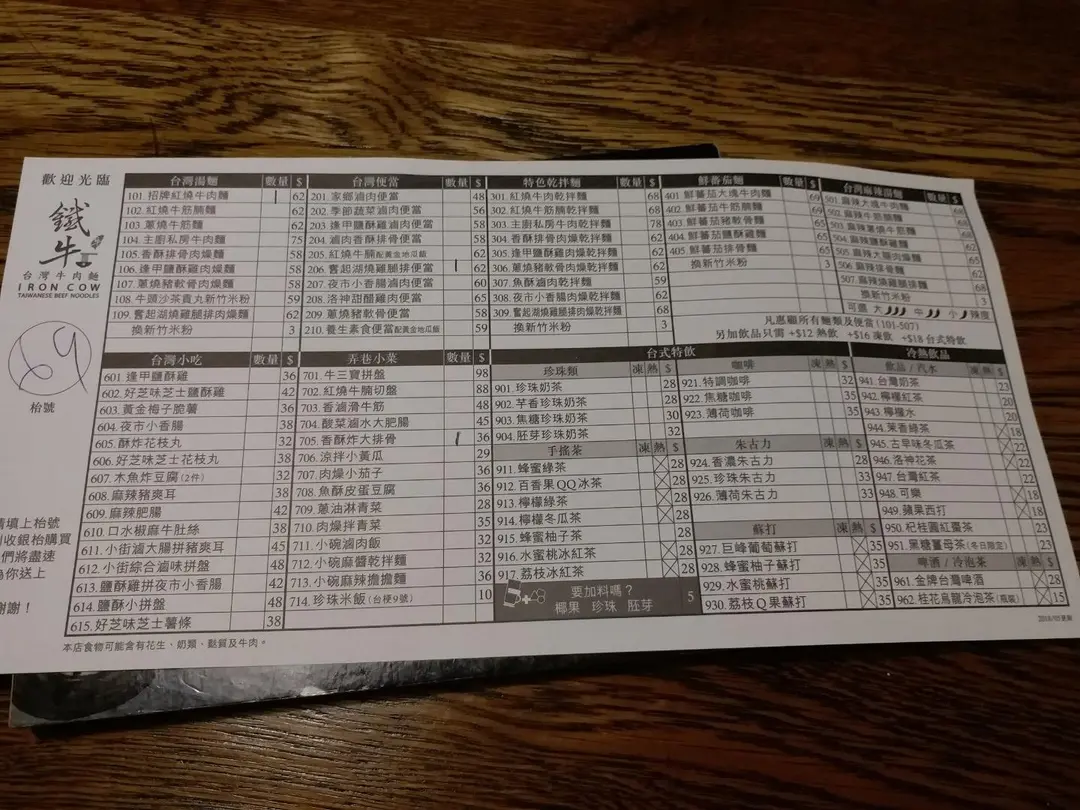 歡迎光臨
鐵牛
台灣牛肉麵
IRON COW
TAIWANESE BEEF NOODLES
69
枱號
請填上枱號
到收銀枱購買
們將盡速
為你送上
謝謝！
台灣湯麵 數量 $
101. 招牌紅燒牛肉麵 62
102. 紅燒牛筋腩麵 62
103. 蔥燒牛筋麵 62
104. 主廚私房牛肉麵 75
105. 香酥排骨肉燥麵 58
106. 逢甲鹽酥雞肉燥麵 58
107. 蔥燒豬軟骨肉燥麵 58
108. 牛頭沙茶貢丸新竹米粉 58
109. 奮起湖燒雞腿排肉燥麵 62
換新竹米粉 3
台灣便當 數量 $
201. 家鄉滷肉便當 48
202. 季節蔬菜滷肉便當 56
203. 逢甲鹽酥雞滷肉便當 58
204. 滷肉香酥排骨便當 58
205. 紅燒牛腩配黃金地瓜飯 62
206. 奮起湖燒雞腿排便當 62
207. 夜市小香腸滷肉便當 60
208. 洛神甜醋雞肉便當 65
209. 蔥燒豬軟骨滷肉便當 58
210. 養生素食便當配黃金地瓜飯 59
特色乾拌麵 數量 $
301. 紅燒牛肉乾拌麵 68
302. 紅燒牛筋腩乾拌麵 68
303. 主廚私房牛肉乾拌麵 78
304. 香酥排骨肉燥乾拌麵 62
305. 逢甲鹽酥雞肉燥乾拌麵 62
306. 蔥燒豬軟骨肉燥乾拌麵 62
307. 魚酥滷肉乾拌麵 59
308. 夜市小香腸肉燥乾拌麵 62
309. 奮起湖燒雞腿排肉燥乾拌麵 68
換新竹米粉 3
鮮蕃茄麵 數量 $
401. 鮮蕃茄大塊牛肉麵 69
402. 鮮蕃茄牛筋腩麵 69
403. 鮮蕃茄豬軟骨麵 65
404. 鮮蕃茄鹽酥雞麵 65
405. 鮮蕃茄排骨麵 65
換新竹米粉 3
台灣麻辣湯麵 數量 $
501. 麻辣大塊牛肉麵 68
502. 麻辣牛筋腩麵
503. 麻辣蔥燒牛筋麵
504. 麻辣鹽酥雞麵
505. 麻辣大腸肉燥麵 65
506. 麻辣排骨麵 62
換新竹米粉 3
可選 大 中 小 辣度
凡惠顧所有麵類及便當 (101-507)
另加飲品只需 +$12 熱飲 +$16 凍飲 +$18 台式特飲
台灣小吃 數量 $
601. 逢甲鹽酥雞 36
602. 好芝味芝士鹽酥雞 42
603. 黃金梅子脆薯 36
604. 夜市小香腸 38
605. 酥炸花枝丸 32
606. 好芝味芝士花枝丸 38
607. 木魚炸豆腐(2件) 32
608. 麻辣豬爽耳 38
609. 麻辣肥腸 42
610. 口水椒麻牛肚絲 38
611. 小街滷大腸拼豬爽耳 45
612. 小街綜合滷味拼盤 48
613. 鹽酥雞拼夜市小香腸 42
614. 鹽酥小拼盤 48
615. 好芝味芝士薯條 38
弄巷小菜 數量 $
701. 牛三寶拼盤 98
702. 紅燒牛腩切盤 88
703. 香滷滑牛筋 48
704. 酸菜滷水大肥腸 45
705. 香酥炸大排骨 36
706. 涼拌小黃瓜 29
707. 肉燥小茄子 36
708. 魚酥皮蛋豆腐 36
709. 蔥油淋青菜 28
710. 肉燥拌青菜 35
711. 小碗滷肉飯 32
712. 小碗麻醬乾拌麵 32
713. 小碗麻辣擔擔麵 36
714. 珍珠米飯 (台梗9號) 10
台式特飲
珍珠類 凍 熱 $
901. 珍珠奶茶 28
902. 芋香珍珠奶茶 28
903. 焦糖珍珠奶茶 30
904. 胚芽珍珠奶茶 32
手搖茶 凍 熱 $
911. 蜂蜜綠茶 28
912. 百香果QQ冰茶 28
913. 檸檬綠茶 28
914. 檸檬冬瓜茶 28
915. 蜂蜜柚子茶 28
916. 水蜜桃冰紅茶 28
917. 荔枝冰紅茶 28
要加料嗎？
椰果 珍珠 胚芽 5
咖啡 凍 熱 $
921. 特調咖啡 32
922. 焦糖咖啡 35
923. 薄荷咖啡 35
朱古力 凍 熱 $
924. 香濃朱古力 28
925. 珍珠朱古力 33
926. 薄荷朱古力 33
蘇打 凍 熱 $
927. 巨峰葡萄蘇打 35
928. 蜂蜜柚子蘇打 35
929. 水蜜桃蘇打 35
930. 荔枝Q果蘇打 35
冷熱飲品
飲品 / 汽水 凍 熱 $
941. 台灣奶茶 23
942. 檸檬紅茶 20
943. 檸檬水 20
944. 茉香綠茶 18
945. 古早味冬瓜茶 22
946. 洛神花茶 22
947. 台灣紅茶
948. 可樂 18
949. 蘋果西打 18
950. 杞桂圓紅棗茶 23
951. 黑糖薑母茶 (冬日限定) 23
啤酒 / 冷泡茶 凍 熱 $
961. 金牌台灣啤酒 28
962. 桂花烏龍冷泡茶 (瓶裝) 15
本店食物可能含有花生、奶類、麩質及牛肉。